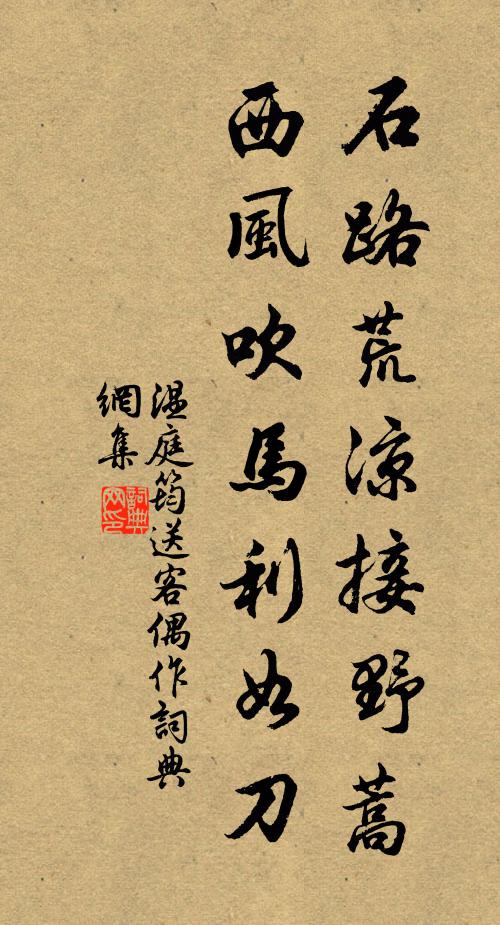 石路荒涼接野蒿
西風吹馬利如刀
溫庭筠送客偶作詞典
網集
詞典
网印